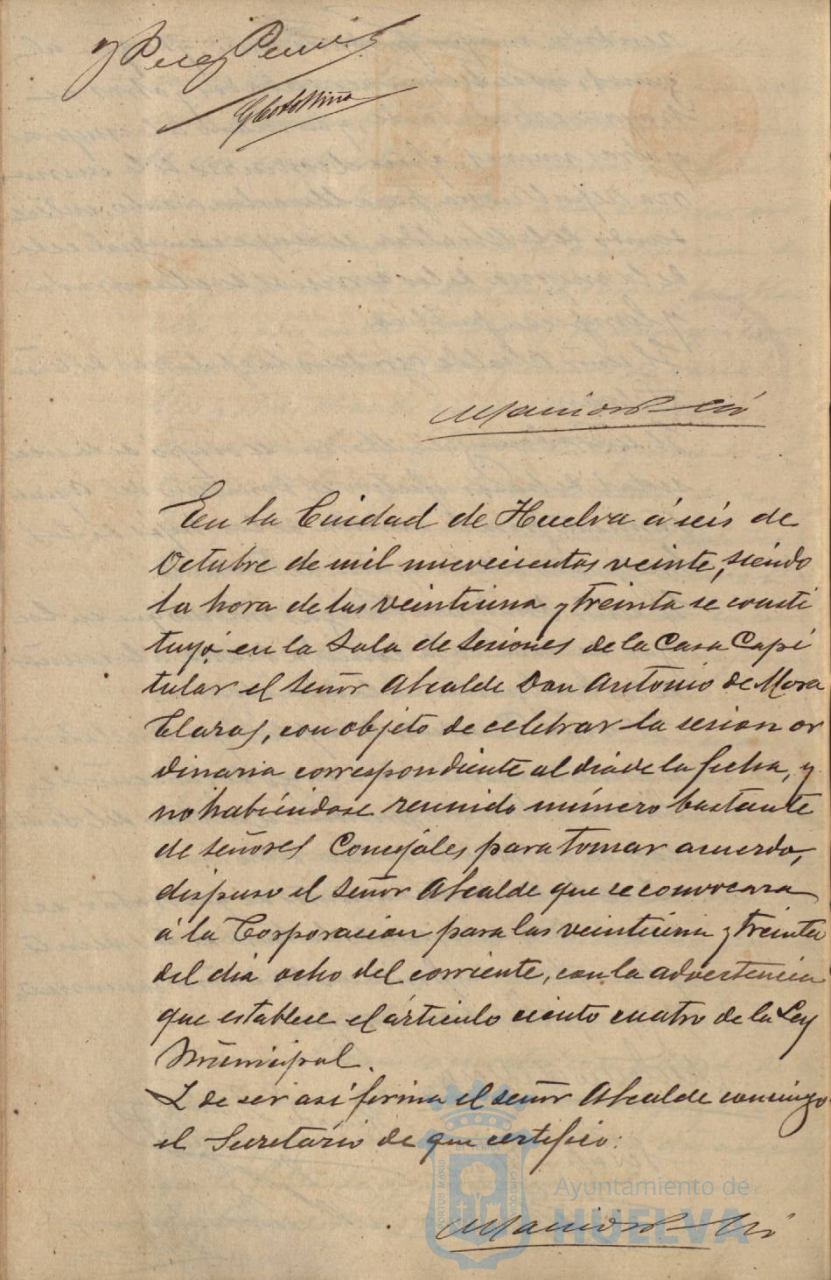 En la Ciudad de Huelva á seis de
Octubre de mil novecientos veinte, siendo
la hora de las veintiuna y treinta se consti
tuyó en la Sala de Sesiones de la Casa Capi
tular el Señor Alcalde Don Antonio de Mora
Claros, con objeto de celebrar la sesion or
dinaria correspondiente al dia de la fecha, y
no habiéndose reunido número bastante
de señores Concejales para tomar acuerdo,
dispuso el Señor Alcalde que se convocara
á la Corporacion para las veintiuna y treinta
del dia ocho del corriente, con la advertencia
que establece el artículo ciento cuatro de la Ley
Municipal.
Y de ser así firma el señor Alcalde conmigo
el Secretario de que certifico:
Ayuntamiento de
HUELVA